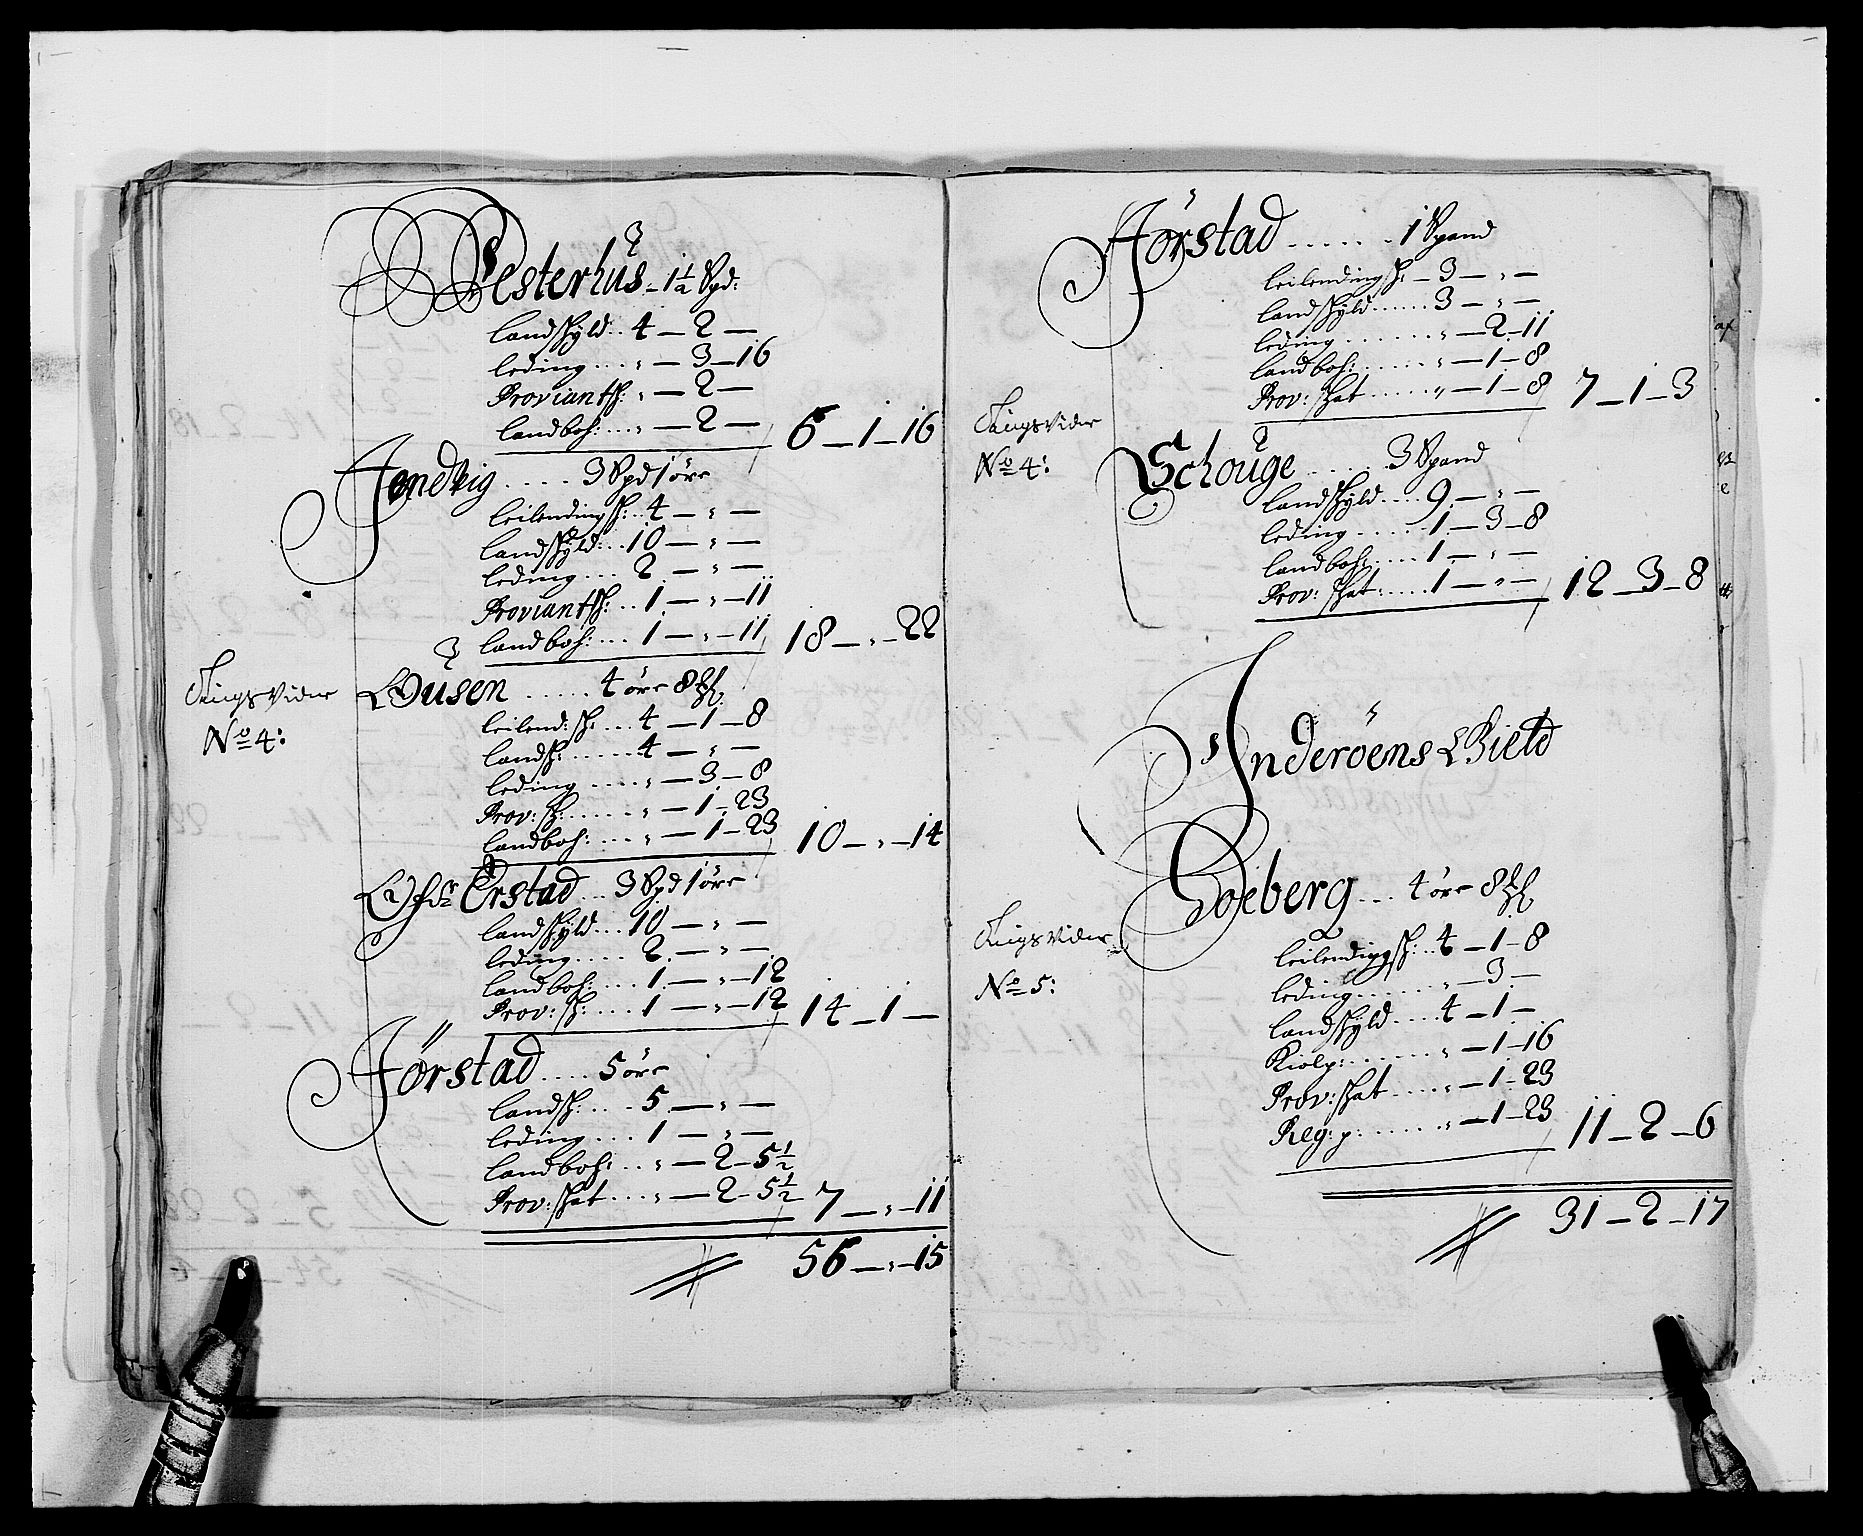 Vesterhus - 1½ Spd:
landskyld .. 4 — 2 —
leding ... „ — 3 — 16
Proviantsk: „ — 2 —
landboh: ... „ — 2 — 6 — 1 — 16
Jendvig ..... 3 Spd 1 öre
leilendingsk: .. 4 — „ —
landskyld: .. 10 — „ —
leding .... 2 — „ —
Proviantsk: .. 1 — „ — 11
landboh: .... 1 — „ — 11 18 — „ — 22
Tingsvidne
No 4:
Husen ..... 4 öre 8 ℔
leilend: sk: ... 4 — 1 — 8
landsk: ...... 4 — „ —
leding ..... „ — 3 — 8
Prov: sk: ...... „ — 1 — 23
landboh: .... „ — 1 — 23 10 — „ — 14
Öfdr Örstad ... 3 Spd 1 öre
landskyld ... 10 — „ —
leding ..... 2 — „ —
landboh: .... 1 — „ — 12
Prov: sk: .... 1 — „ — 12 14 — 1 —
Jörstad ..... 5 öre
landsk: .... 5 — „ —
leding .... 1 — „ —
landboh: ... „ — 2 — 5½
Prov: skat .... „ — 2 — 5½ 7 — „ — 11
56 — „ — 15
Jörstad ...... 1 Spand
leilendingsk: — 3 — „ —
landskyld ...... 3 — „ —
leding ....... „ — 2 — 11
landboh: ...... „ — 1 — 8
Prov: skat ..... „ — 1 — 8 7 — 1 — 3
Tingsvidne
No 4:
Schouge ..... 3 Spand
landskyld .... 9 — „ —
leding ...... 1 — 3 — 8
landboh: .... 1 — „ —
Prov: skat: ..... 1 — „ — 12 — 3 — 8
Inderöens Gield
Tingsvidne
No 5:
Goeberg ... 4 öre 8 ℔
leilendingsk: .. 4 — 1 — 8
leding ...... „ — 3 —
landskyld .... 4 — 1 —
Kiolp: ....... „ — 1 — 16
Prov: skat .... „ — 1 — 23
Reg: p: ...... „ — 1 — 23 11 — 2 — 6
31 — 2 — 17